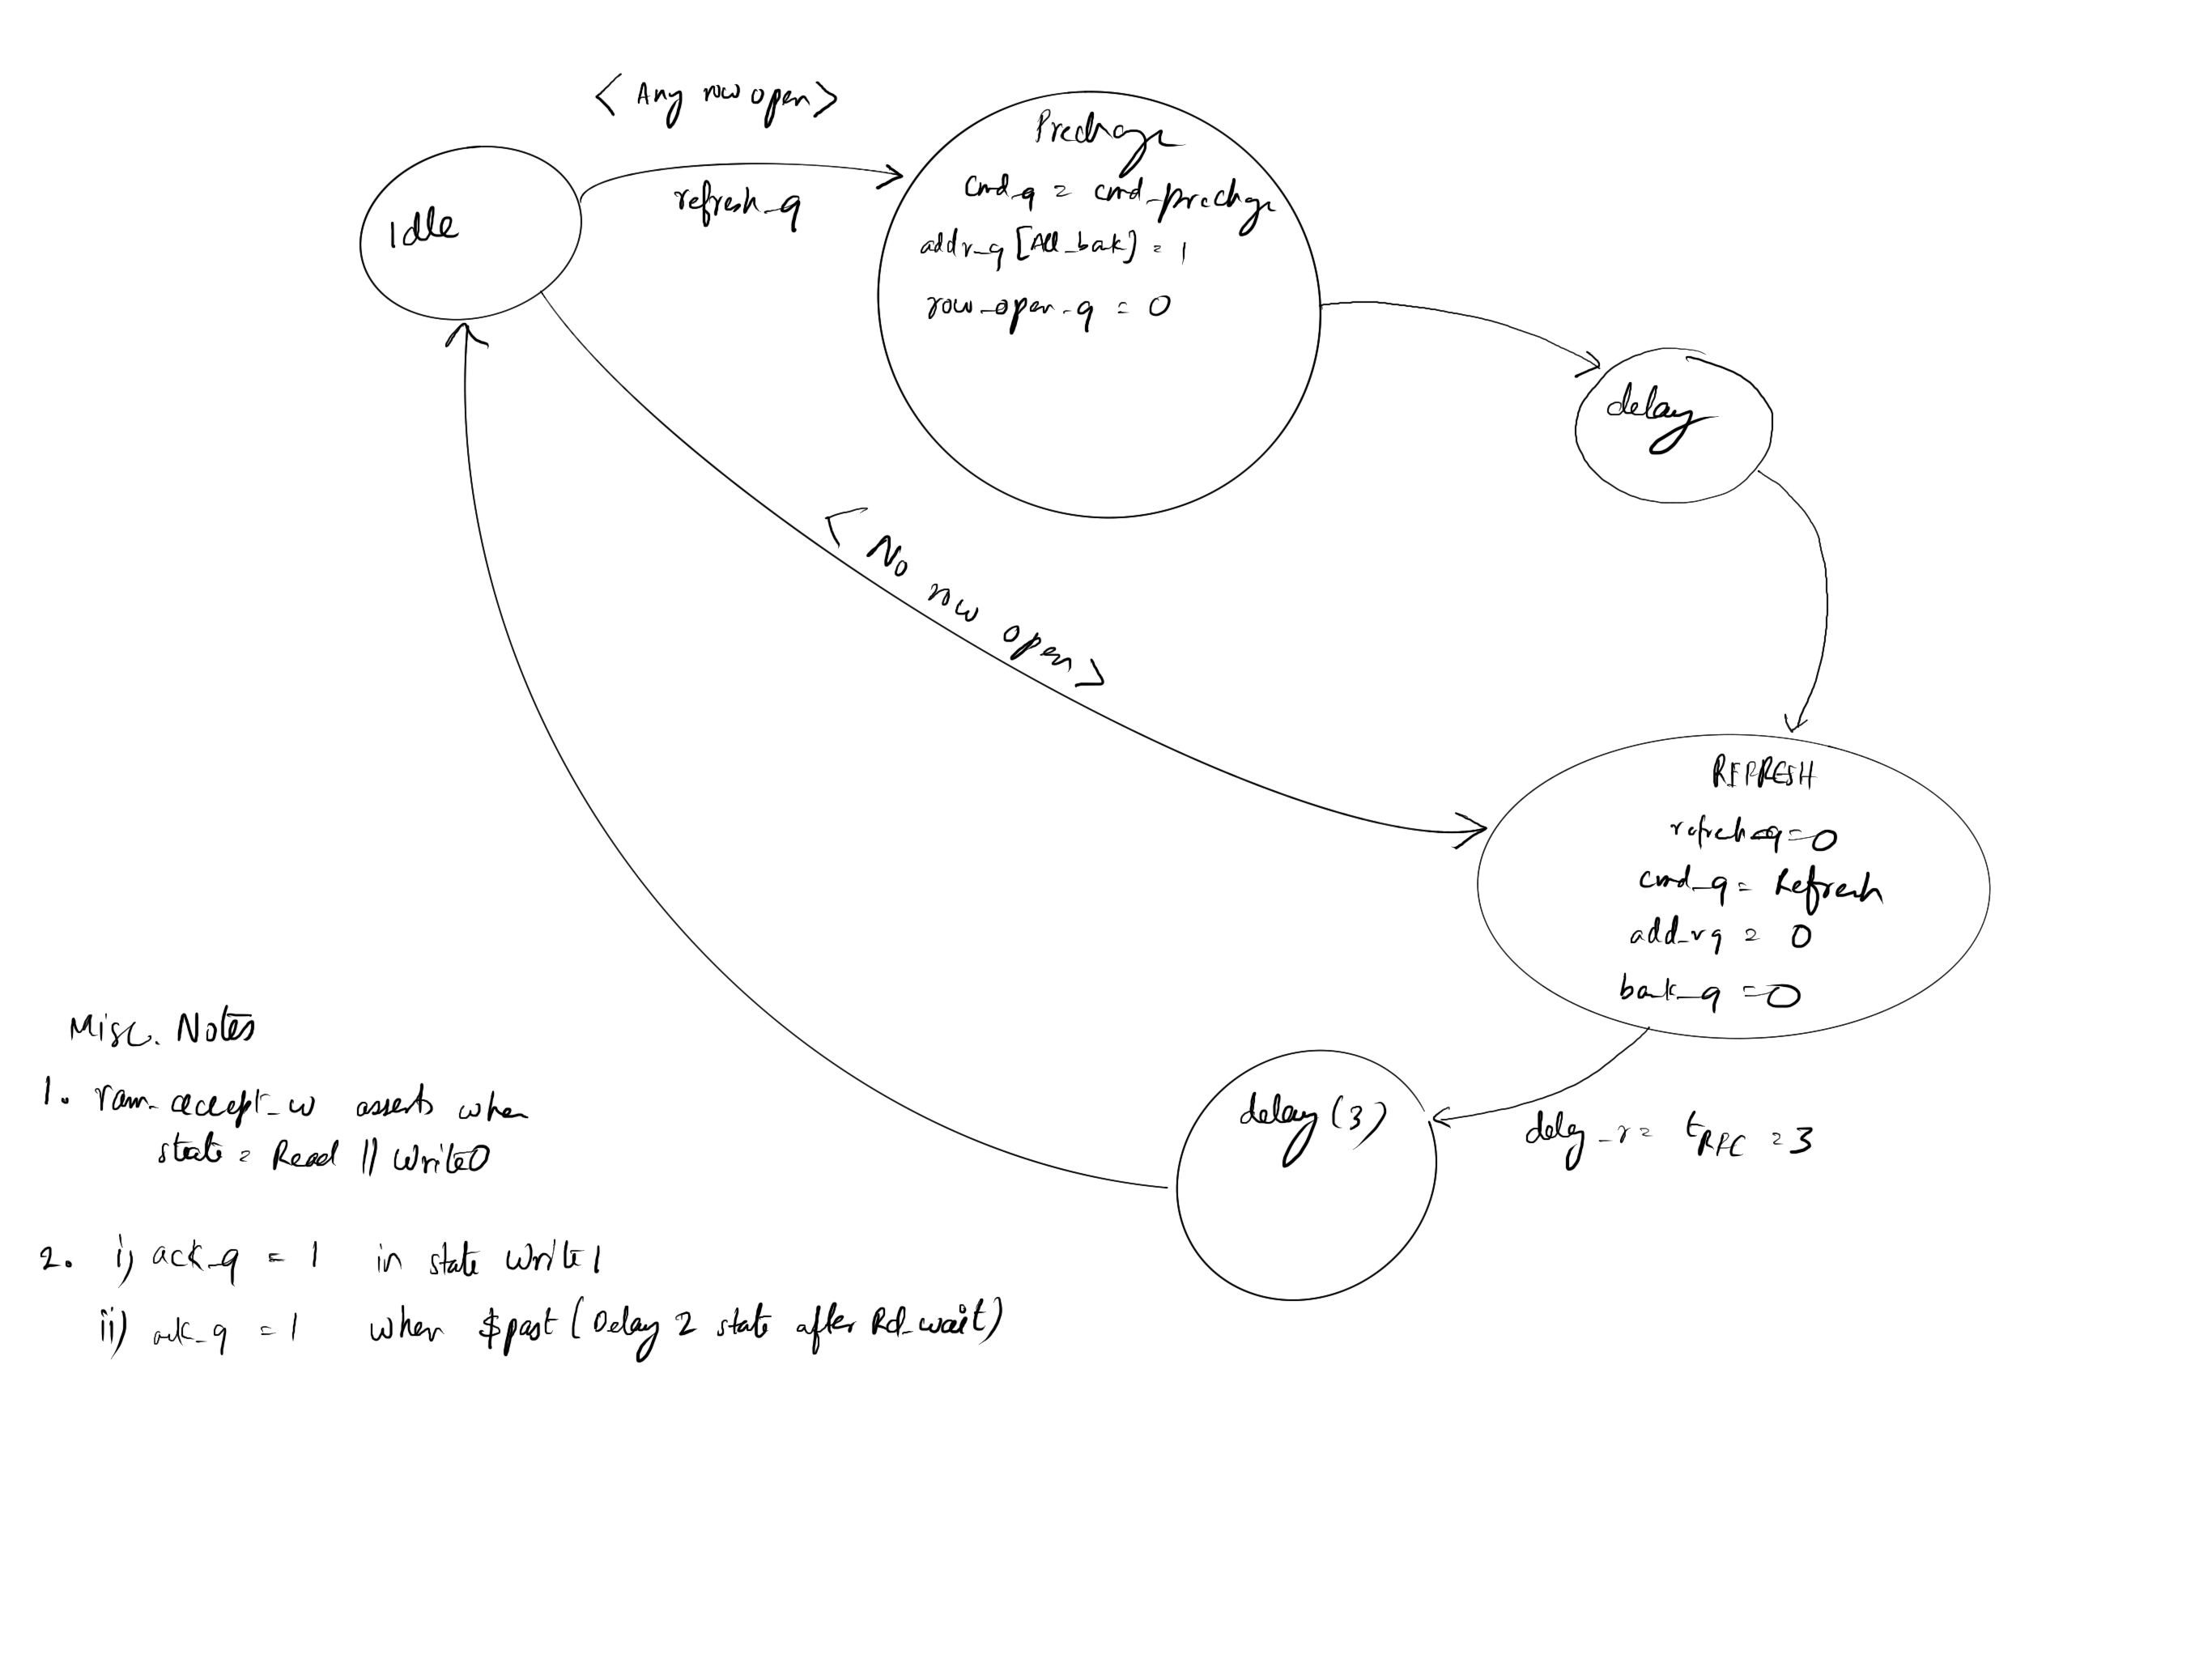 < Any row open >
refresh_q
Idle
Prechage
cmd_q = cmd_prechge
addr_q [All_bak] = 1
row_open_q = 0
delay
< No row open >
REFRESH
refreh_q = 0
cmd_q = Refresh
add_rq = 0
bak_q = 0
delay (3)
delay_r = tRFC = 3
Misc. Notes
1. ram_accept_w asserts when
state = Read || Write0
2. i) ack_q = 1 in state Write1
ii) ack_q = 1 when $past (Delay 2 state after Rd_wait)